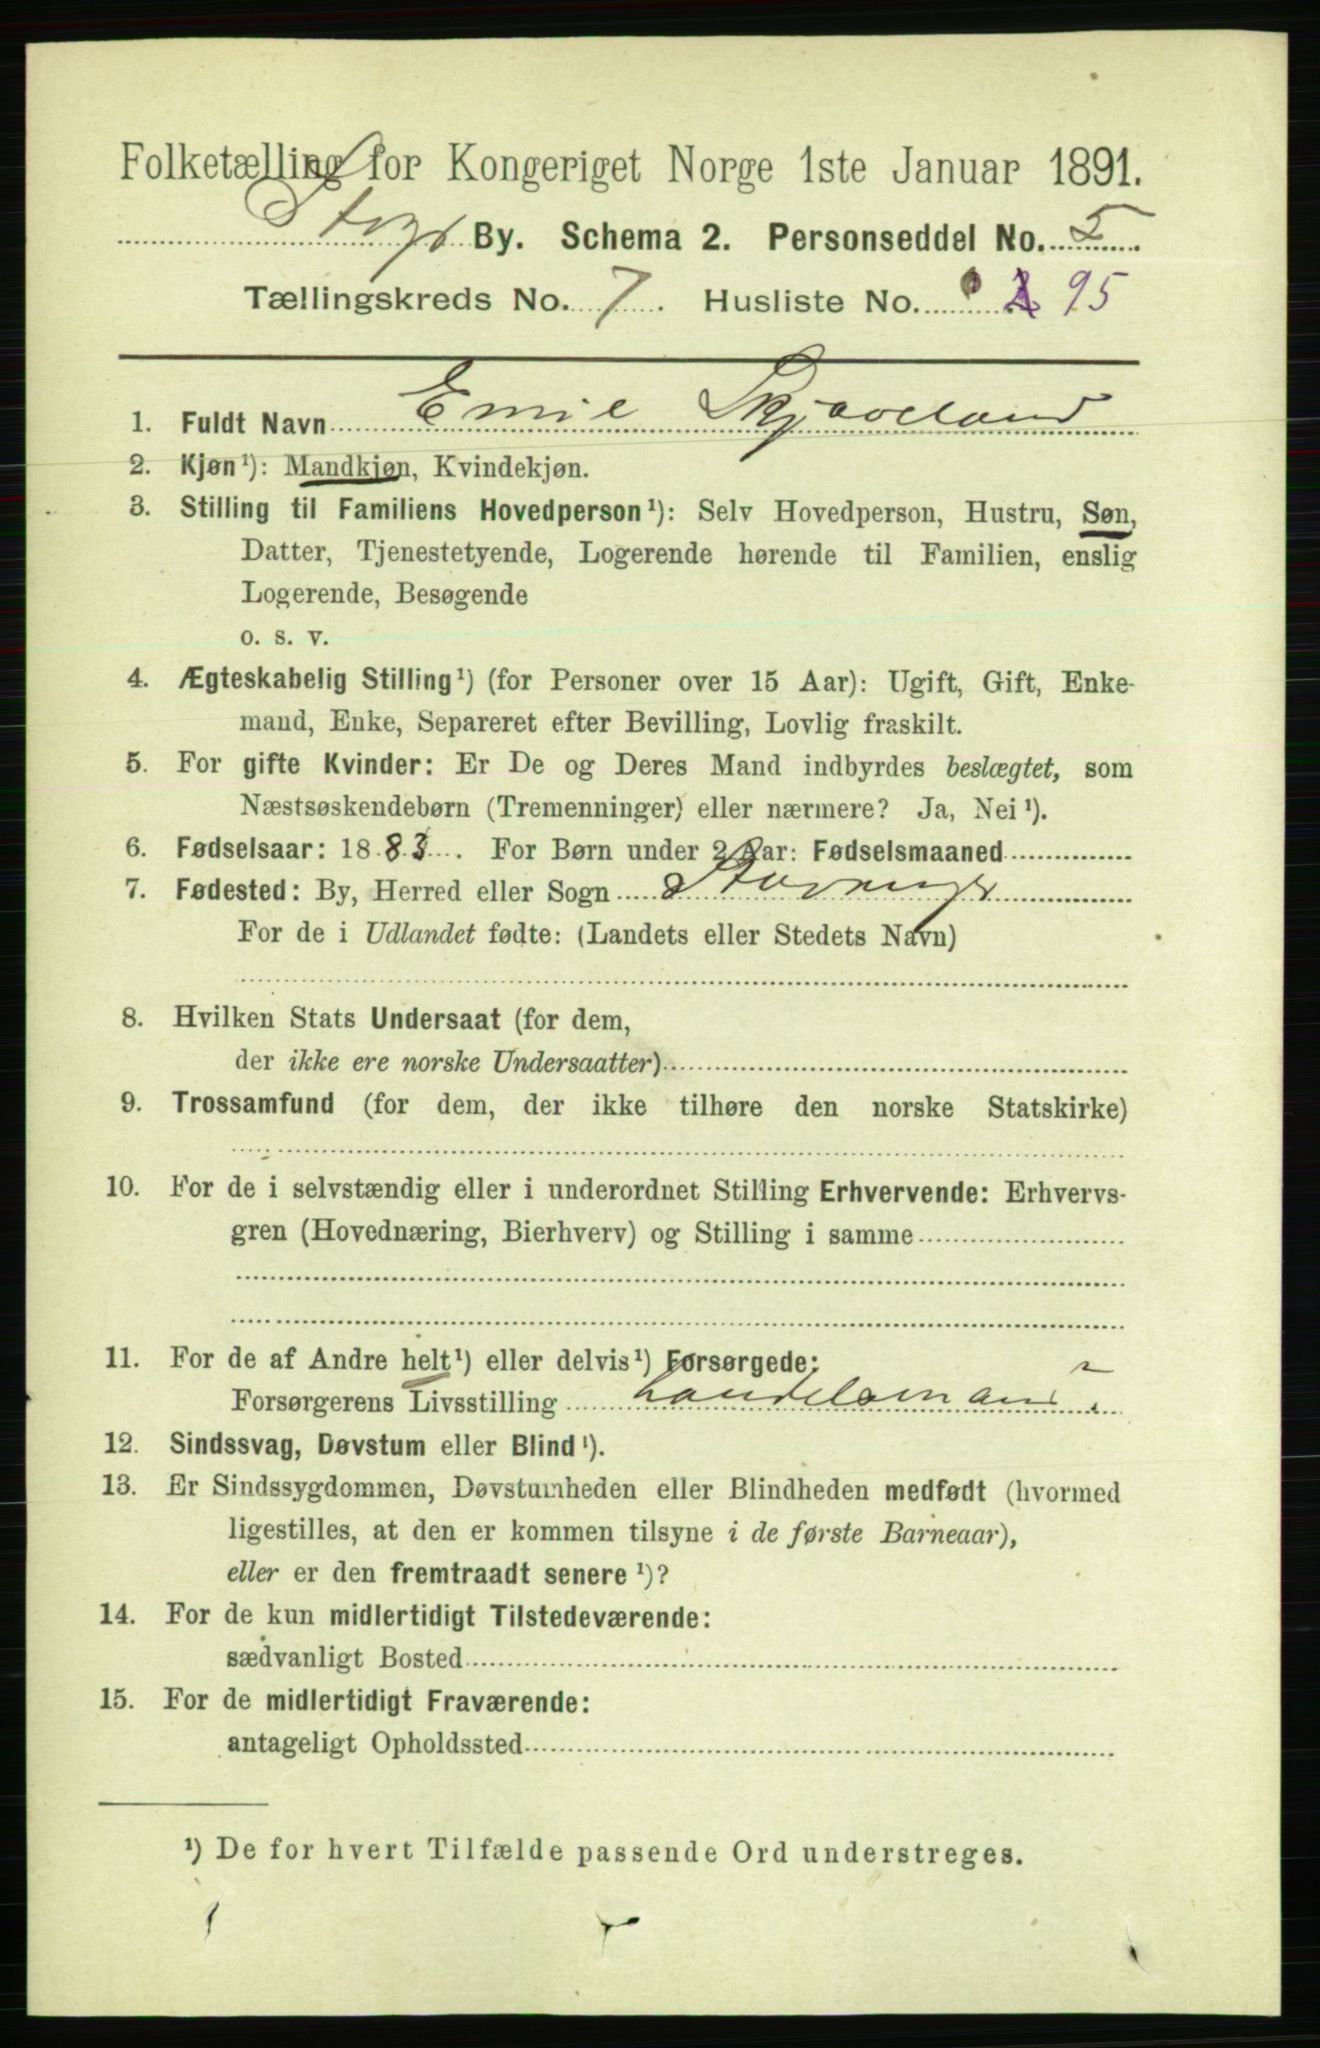 Folketælling for Kongeriget Norge 1ste Januar 1891.
Stvgr By. Schema 2. Personseddel No. 5
Tællingskreds No. 7. Husliste No. 95
1. Fuldt Navn Emil Skjæveland
2. Kjøn¹): Mandkjøn, Kvindekjøn.
3. Stilling til Familiens Hovedperson¹): Selv Hovedperson, Hustru, Søn,
Datter, Tjenestetyende, Logerende hørende til Familien, enslig
Logerende, Besøgende
o. s. v.
4. Ægteskabelig Stilling¹) (for Personer over 15 Aar): Ugift, Gift, Enke-
mand, Enke, Separeret efter Bevilling, Lovlig fraskilt.
5. For gifte Kvinder: Er De og Deres Mand indbyrdes beslægtet, som
Næstsøskendebørn (Tremenninger) eller nærmere? Ja, Nei¹).
6. Fødselsaar: 1883. For Børn under 2 Aar: Fødselsmaaned
7. Fødested: By, Herred eller Sogn Stavanger
For de i Udlandet fødte: (Landets eller Stedets Navn)
8. Hvilken Stats Undersaat (for dem,
der ikke ere norske Undersaatter)
9. Trossamfund (for dem, der ikke tilhøre den norske Statskirke)
10. For de i selvstændig eller i underordnet Stilling Erhvervende: Erhvervs-
gren (Hovednæring, Bierhverv) og Stilling i samme
11. For de af Andre helt¹) eller delvis¹) Forsørgede:
Forsørgerens Livsstilling Handelsmand
12. Sindssvag, Døvstum eller Blind¹).
13. Er Sindssygdommen, Døvstumheden eller Blindheden medfødt (hvormed
ligestilles, at den er kommen tilsyne i de første Barneaar),
eller er den fremtraadt senere¹)?
14. For de kun midlertidigt Tilstedeværende:
sædvanligt Bosted
15. For de midlertidigt Fraværende:
antageligt Opholdssted
¹) De for hvert Tilfælde passende Ord understreges.